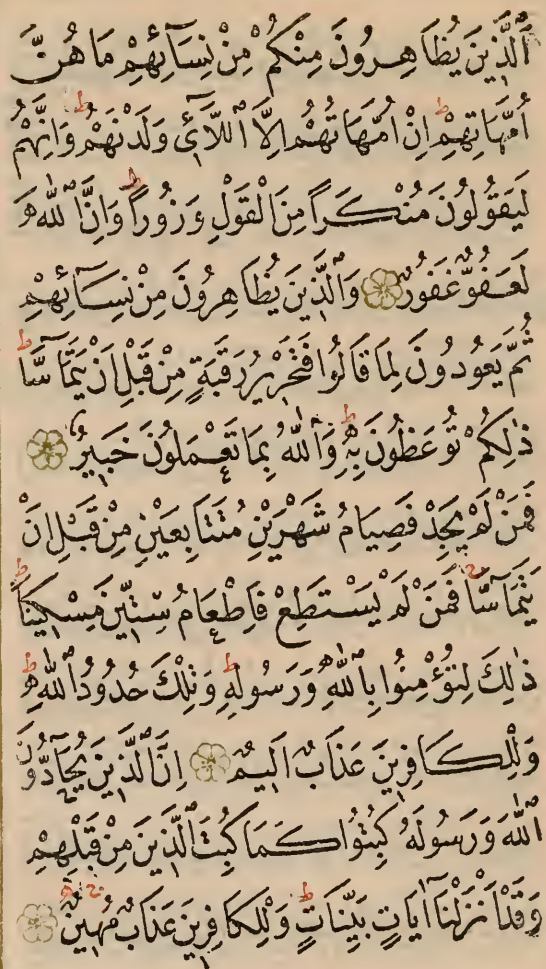 اَلَّذِينَ يُظَاهِرُونَ مِنْكُمْ مِنْ نِسَآئِهِمْ مَا هُنَّ
اُمَّهَاتِهِمْ ط اِنْ اُمَّهَاتُهُمْ اِلَّا اللَّآئِ وَلَدْنَهُمْ ط وَاِنَّهُمْ
لَيَقُولُونَ مُنْكَرًا مِنَ الْقَوْلِ وَزُورًا ط وَاِنَّ اللّٰهَ
لَعَفُوٌّ غَفُورٌ وَالَّذِينَ يُظَاهِرُونَ مِنْ نِسَآئِهِمْ
ثُمَّ يَعُودُونَ لِمَا قَالُوا فَتَحْرِيرُ رَقَبَةٍ مِنْ قَبْلِ اَنْ يَتَمَآسَّا ط
ذٰلِكُمْ تُوعَظُونَ بِهِ ط وَاللّٰهُ بِمَا تَعْمَلُونَ خَبِيرٌ
فَمَنْ لَمْ يَجِدْ فَصِيَامُ شَهْرَيْنِ مُتَتَابِعَيْنِ مِنْ قَبْلِ اَنْ
يَتَمَآسَّا ج فَمَنْ لَمْ يَسْتَطِعْ فَاِطْعَامُ سِتِّينَ مِسْكِينًا ط
ذٰلِكَ لِتُؤْمِنُوا بِاللّٰهِ وَرَسُولِهِ ط وَتِلْكَ حُدُودُ اللّٰهِ ط
وَلِلْكَافِرِينَ عَذَابٌ اَلِيمٌ اِنَّ الَّذِينَ يُحَآدُّونَ
اللّٰهَ وَرَسُولَهُ كُبِتُوا كَمَا كُبِتَ الَّذِينَ مِنْ قَبْلِهِمْ
وَقَدْ اَنْزَلْنَا اٰيَاتٍ بَيِّنَاتٍ ط وَلِلْكَافِرِينَ عَذَابٌ مُهِينٌ ج